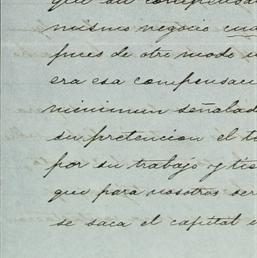 que su compensac
mismo negocio cua
pues de otro modo n
era esa compensac
minimun señalad
su pretencion el t
por su trabajo y tie
que para nosotros ser
se saca el capital